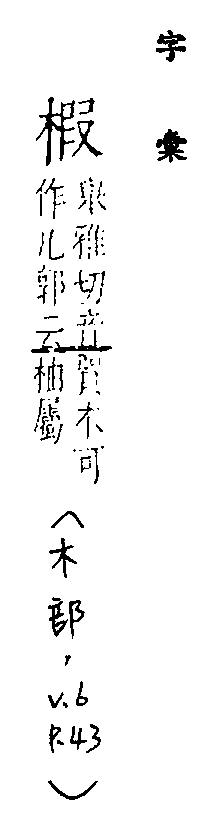 字彙
椵
舉雅切音賈木可
作几郭云柚屬
（木部，v.6 P.43）